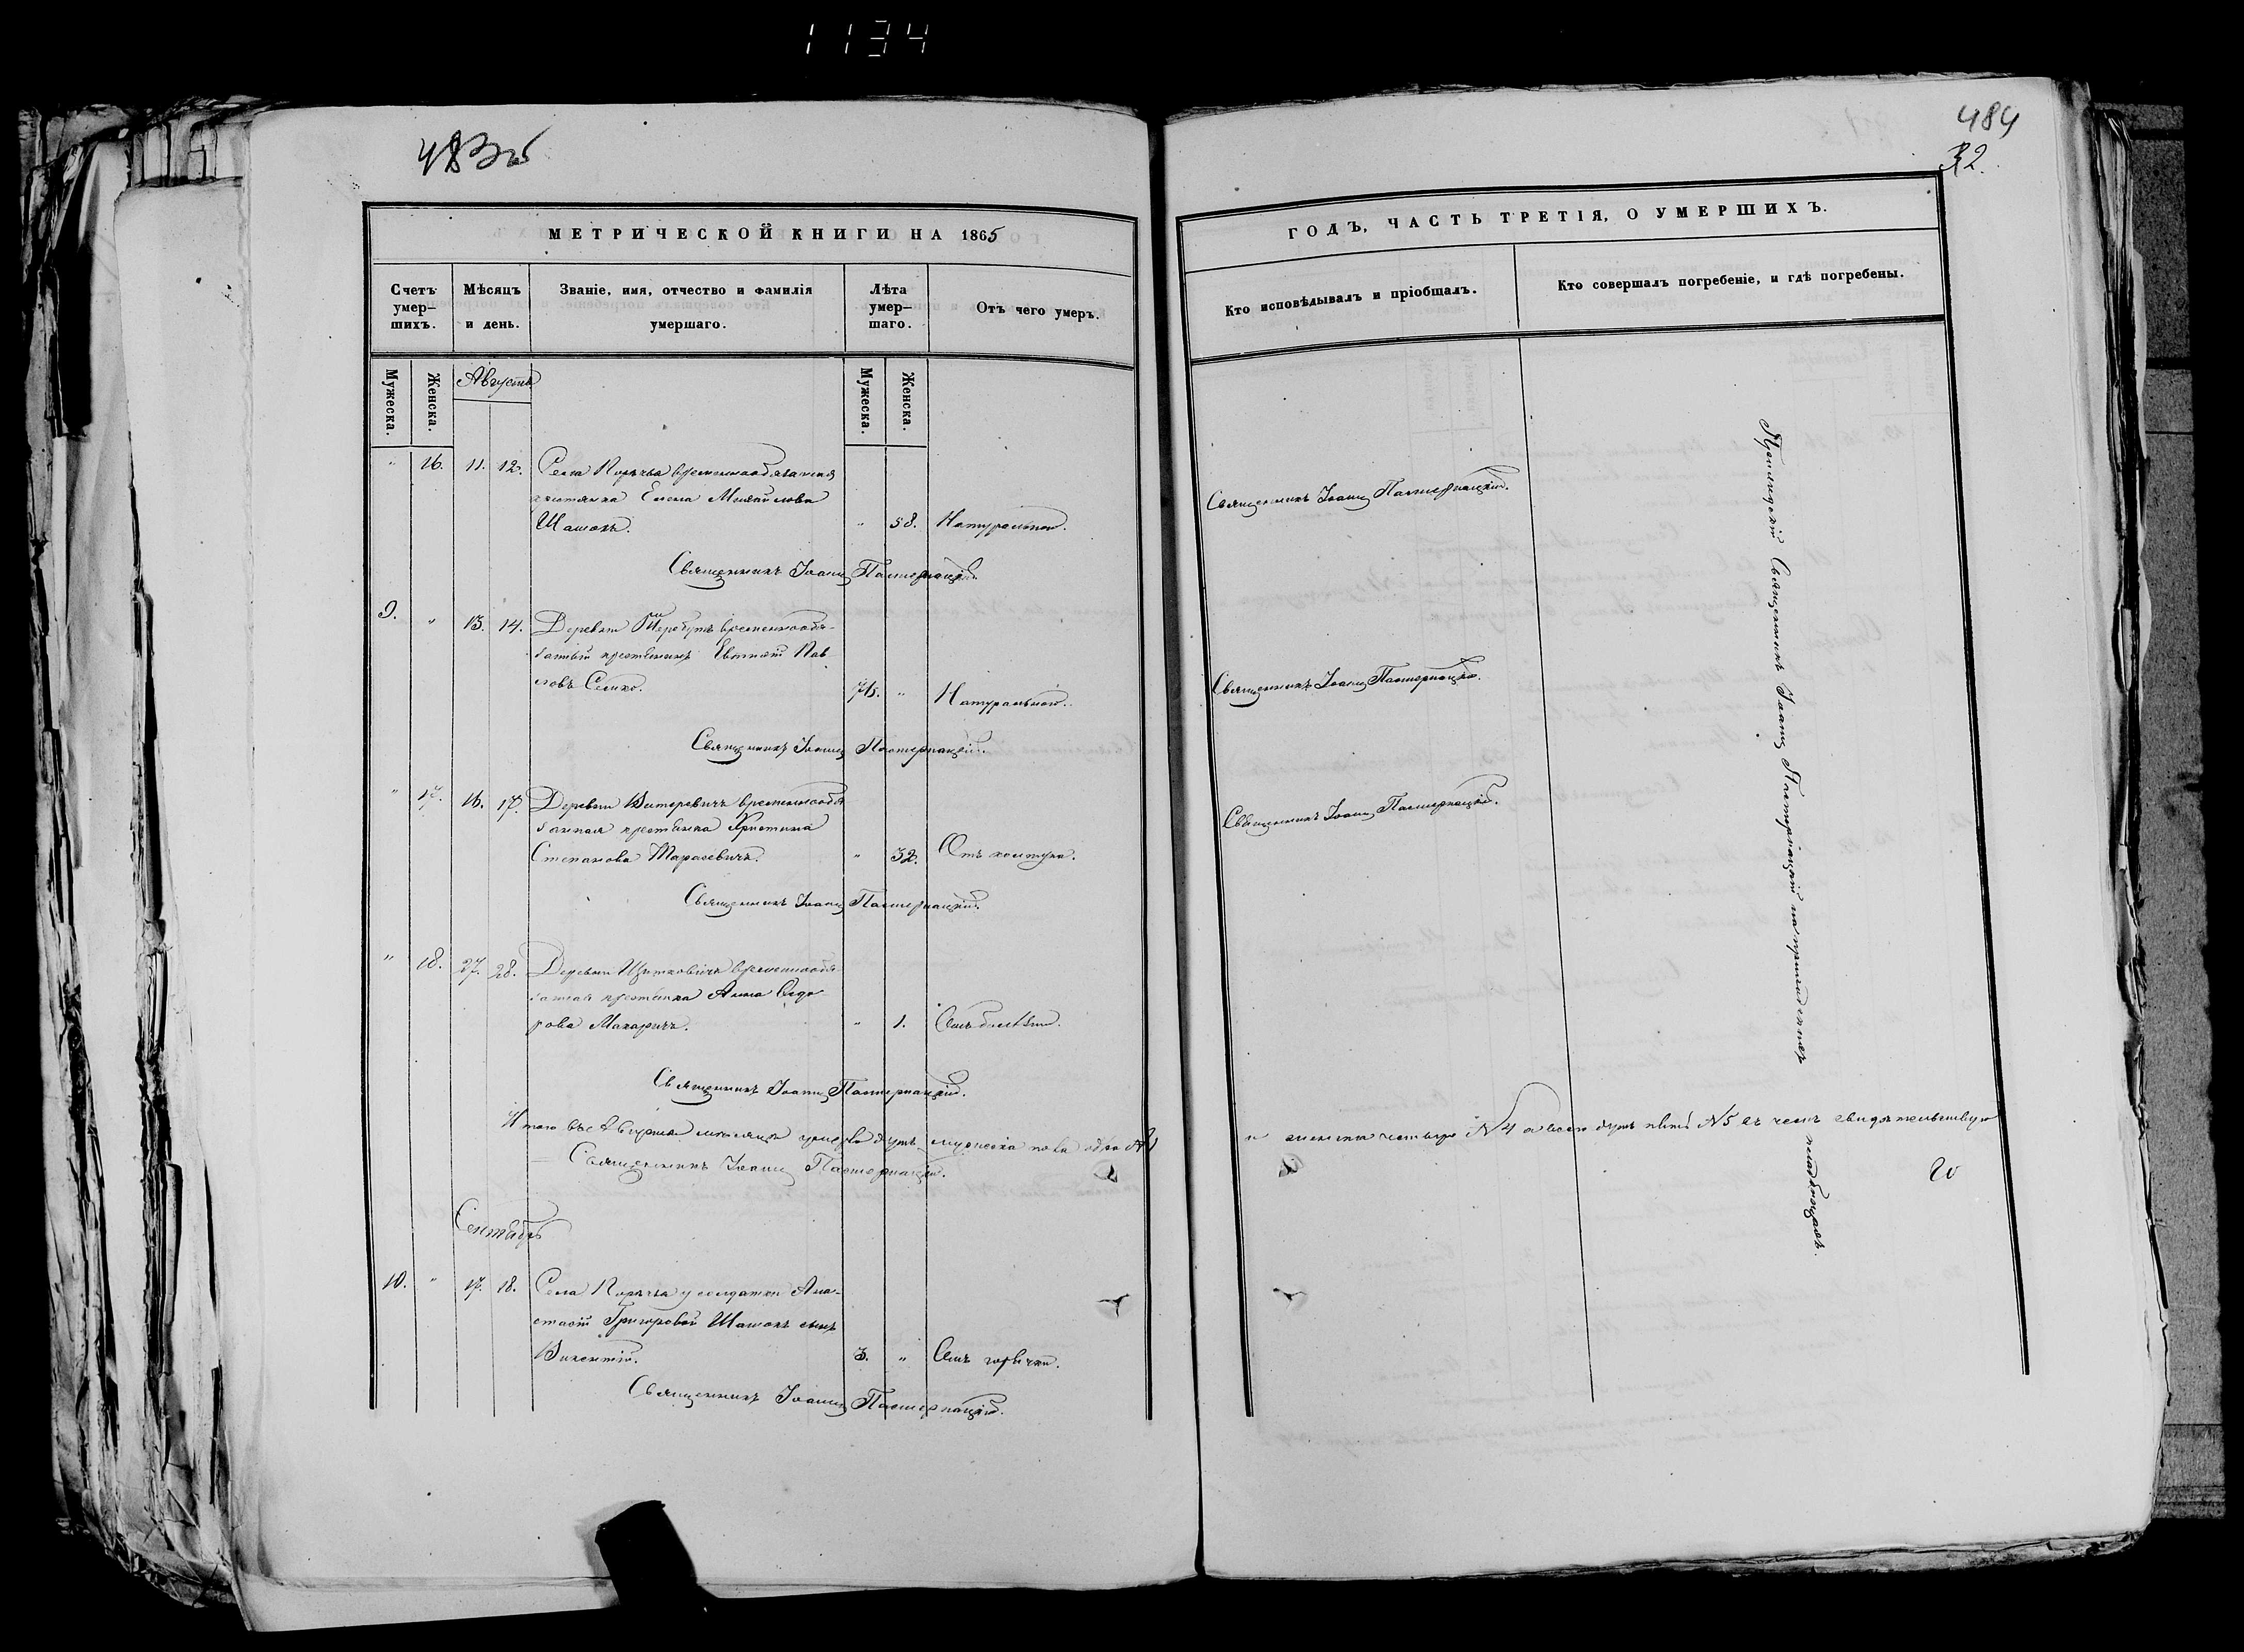 1134
483 об
484
32.
МЕТРИЧЕСКОЙ КНИГИ НА 1865
ГОДЪ, ЧАСТЬ ТРЕТІЯ, О УМЕРШИХЪ.
Счетъ умер-
шихъ.
Мѣсяцъ
и день.
Званіе, имя, отчество и фамилія
умершаго.
Лѣта
умер-
шаго.
Отъ чего умеръ.
Кто исповѣдывалъ и пріобщалъ.
Кто совершалъ погребеніе, и гдѣ погребены.
Мужеска.
Женска.
Августъ
Мужеска.
Женска.
" 16. 11. 12. Села Порѣчья временнообязанная
крестянка Елена Михайлова
Шашокъ. " 58. Натурально.
Священникъ Іоаннъ Пастернацкій.
Священникъ Іоаннъ Пастернацкій.
9. " 13. 14. Деревни Теребутъ временнообя-
занный крестянинъ Пав-
ловъ " Натурально.
Священникъ Іоаннъ Пастернацкій.
Священникъ Іоаннъ Пастернацкій.
" 17. 16. 17. Деревни временнообя-
занная крестянка Христина
Степанова Тарасевичъ. " 32. Отъ колтуна.
Священникъ Іоаннъ Пастернацкій.
Священникъ Іоаннъ Пастернацкій.
" 18. 27. 28. Деревни временнообя-
занная крестянка Анна Сидо-
рова Макаричъ. " 1. Отъ
Священникъ Іоаннъ Пастернацкій.
Итого въ Августѣ мѣсяцѣ умерло душъ мужеска пола одна №1
и женска четыре №4 а всего душъ пять №5 въ чемъ свидѣтельствую
Священникъ Іоаннъ Пастернацкій.
Сентябрь
10. " 17. 18. Села Порѣчья у солдатки Ана-
стасіи Григоровой Шашокъ сынъ
Викентій. 3. " Отъ горячки.
Священникъ Іоаннъ Пастернацкій.
Священникъ Іоаннъ Пастернацкій на приходскомъ
кладбищахъ.